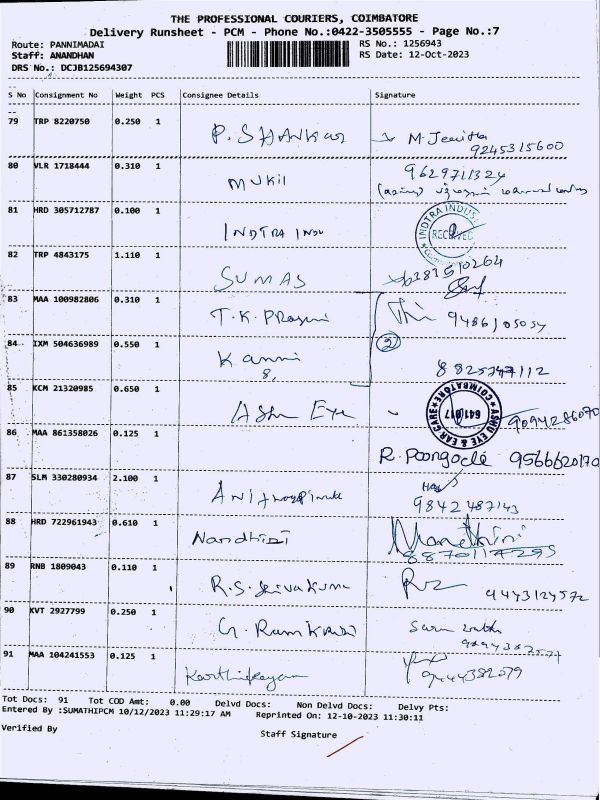 THE PROFESSIONAL COURIERS, COIMBATORE
Delivery Runsheet - PCM - Phone No.:0422-3505555 - Page No.:7
Route: PANNIMADAI
Staff: ANANDHAN
DRS No.: DCJB125694307
RS No.: 1256943
RS Date: 12-Oct-2023
S No Consignment No Weight PCS Consignee Details Signature
79 TRP 8220750 0.250 1 P. SHANKAR M. Jenitha
9245315600
80 VLR 1718444 0.310 1 MUKIL 9629711324
81 HRD 305712787 0.100 1 INDTRA INDU INDTRA INDUS RECEIVED
82 TRP 4843175 1.110 1 SUMAS
83 MAA 100982806 0.310 1 T.K. 9486105054
84 IXM 504636989 0.550 1 Kanni 2
8825747112
85 KCM 21320985 0.650 1 Ashu Eye ASHU EYE & EAR CARE COIMBATORE 641 017 9094286070
86 MAA 861358026 0.125 1 R. Poongode 9566620170
87 SLM 330280934 2.100 1 9842487143
88 HRD 722961943 0.610 1 Nandhini
8870117295
89 RNB 1809043 0.110 1 R.S. Sivakumar 9443124572
90 KVT 2927799 0.250 1 G. Ram
91 MAA 104241553 0.125 1 Karthikeyan 9444382579
Tot Docs: 91 Tot COD Amt: 0.00 Delvd Docs: Non Delvd Docs: Delvy Pts:
Entered By :SUMATHIPCM 10/12/2023 11:29:17 AM Reprinted On: 12-10-2023 11:30:11
Verified By Staff Signature